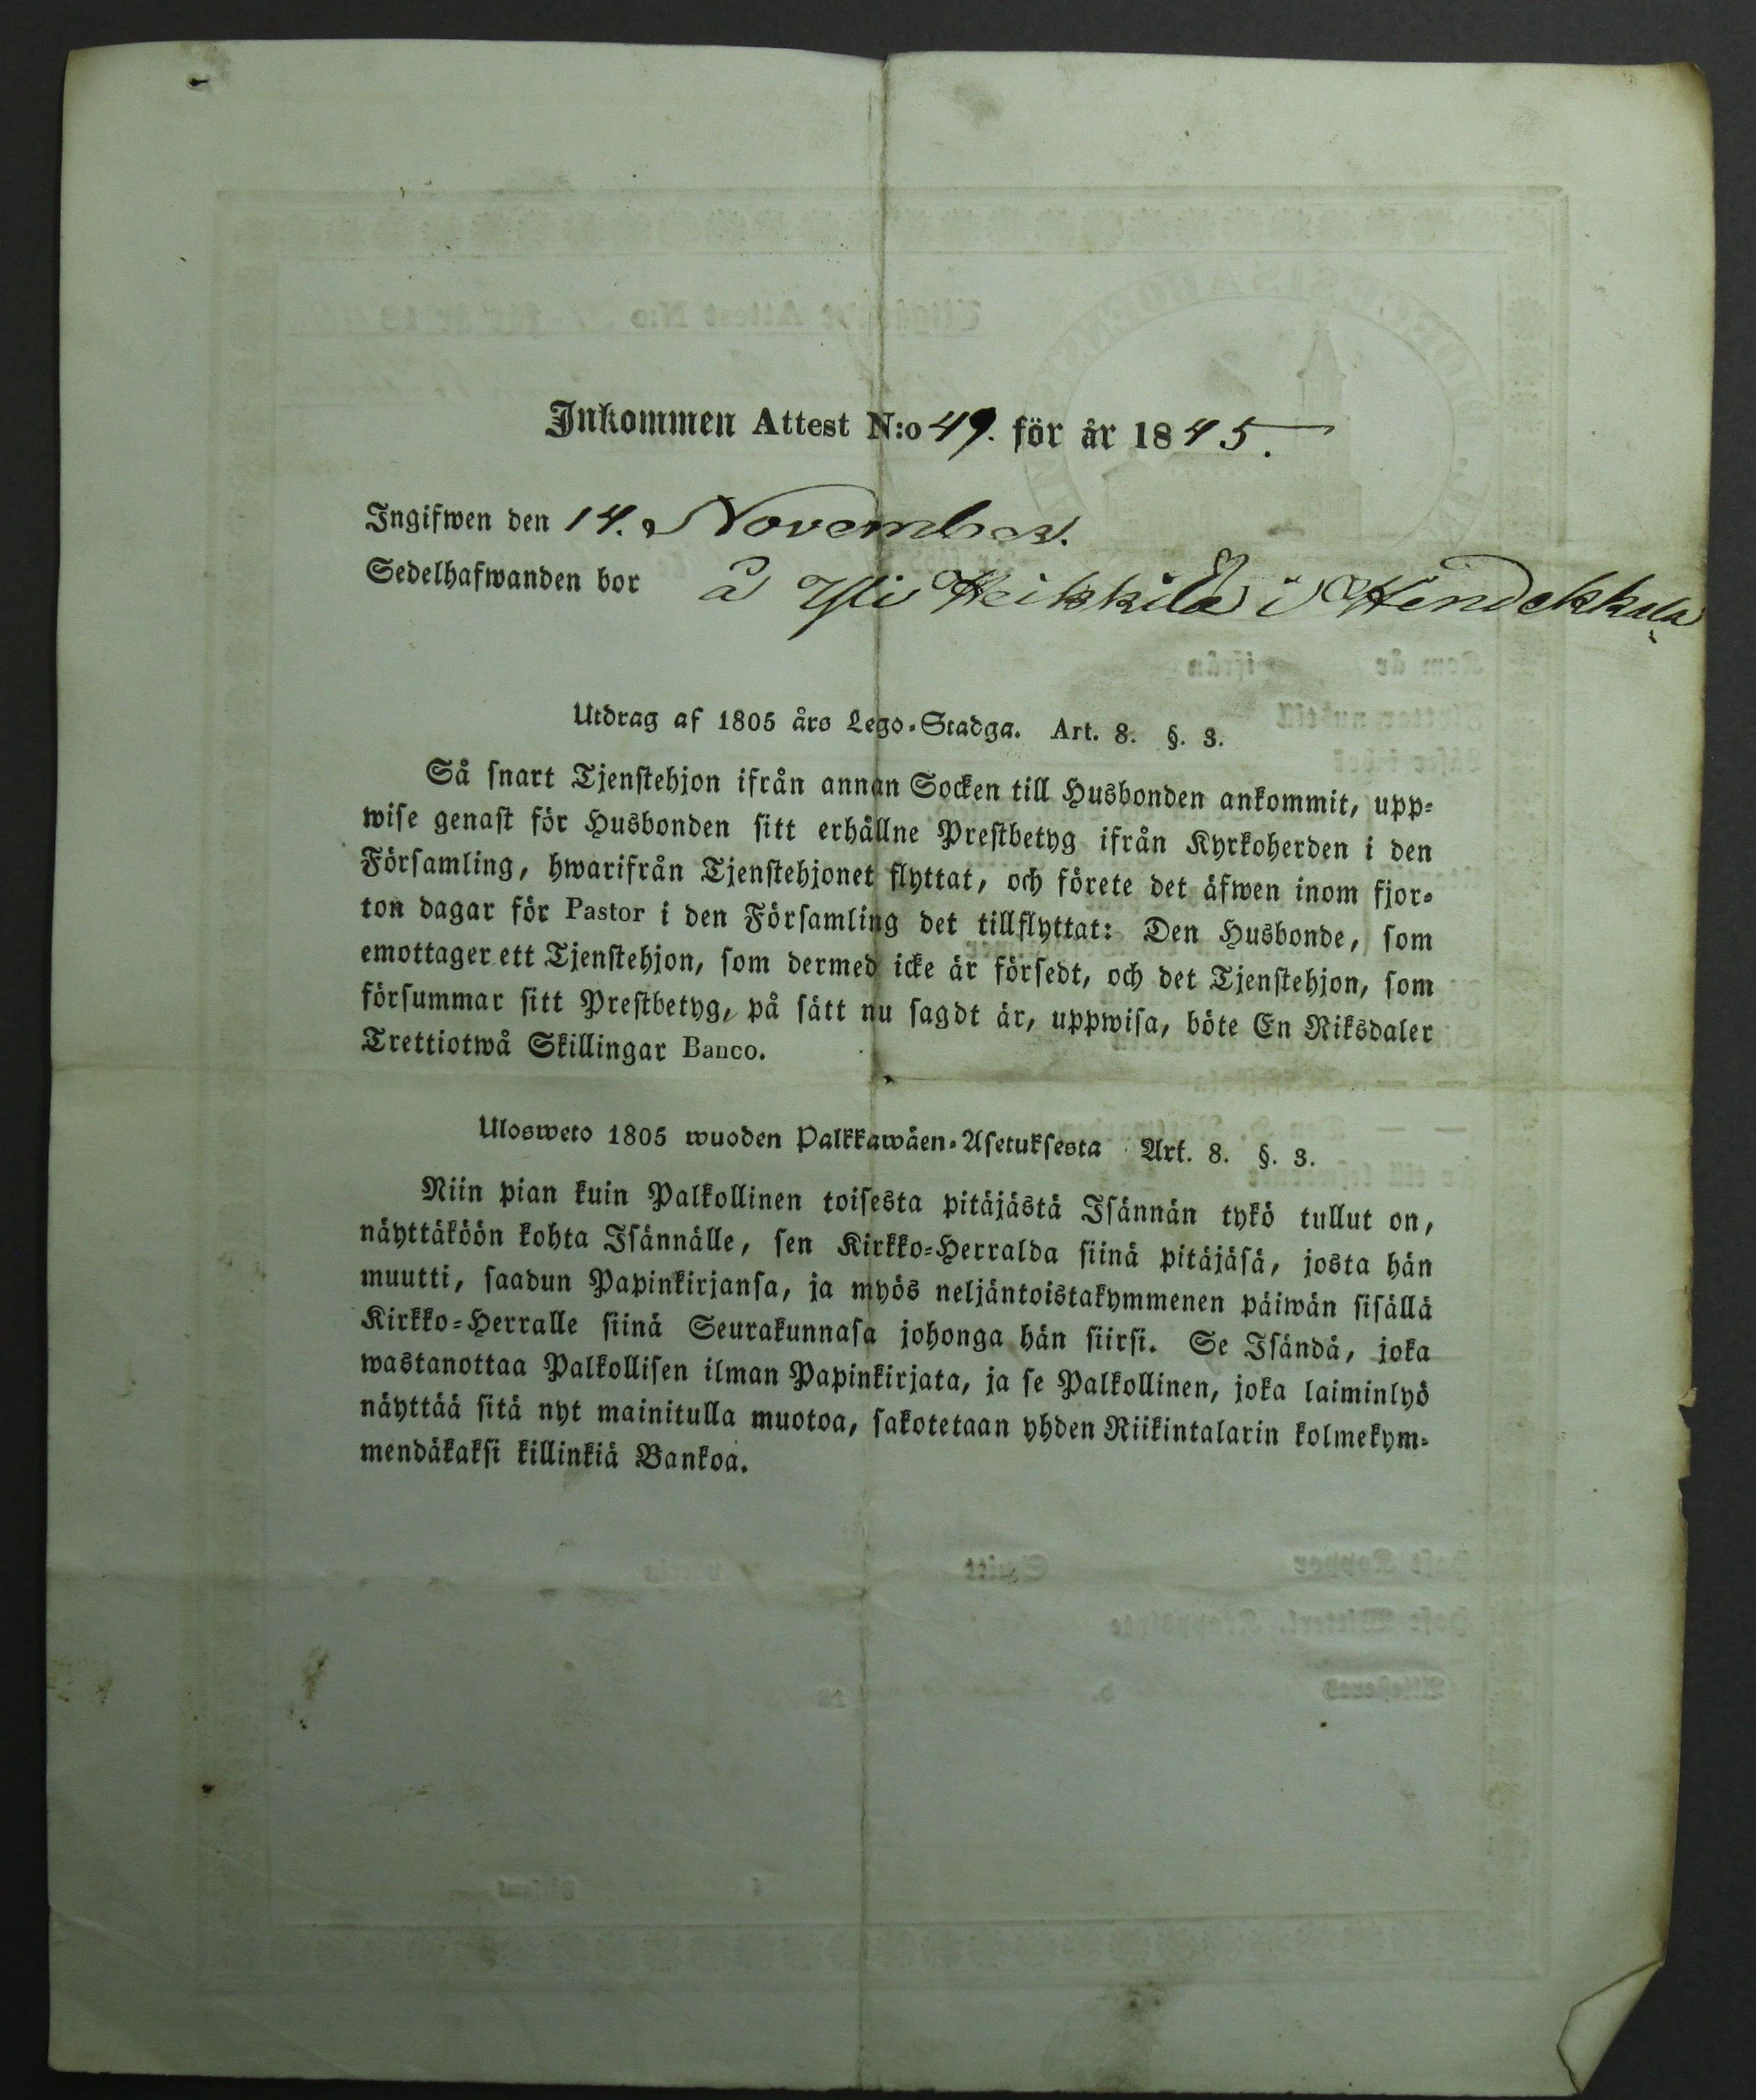 Inkommen Attest N:o 49. för år 1845.
Ingifwen den 14. November.
Sedelhafwanden bor å Yli Heikkilä i Hindekkala
Utdrag af 1805 års Lego-Stadga. Art. 8. §. 3.
Så snart Tjenstehjon ifrån annan Socken till Husbonden ankommit, upp-
wise genast för Husbonden sitt erhållne Prestbetyg ifrån Kyrkoherden i den
Församling, hwarifrån Tjenstehjonet flyttat, och förete det äfwen inom fjor-
ton dagar för Pastor i den Församling det tillflyttat: Den Husbonde, som
emottager ett Tjenstehjon, som dermed icke är försedt, och det Tjenstehjon, som
försummar sitt Prestbetyg, på sätt nu sagdt är, uppwisa, böte En Riksdaler
Trettiotwå Skillingar Banco.
Ulosweto 1805 wuoden Palkkawäen-Asetuksesta Art. 8. §. 3.
Niin pian kuin Palkollinen toisesta pitäjästä Isännän tykö tullut on,
näyttäköön kohta Isännälle, sen Kirkko-Herralda siinä pitäjäsä, josta hän
muutti, saadun Papinkirjansa, ja myös neljäntoistakymmenen päiwän sisällä
Kirkko-Herralle siinä Seurakunnasa johonga hän siirsi. Se Isändä, joka
wastanottaa Palkollisen ilman Papinkirjata, ja se Palkollinen, joka laiminlyö
näyttää sitä nyt mainitulla muotoa, sakotetaan yhden Riikintalarin kolmekym-
mendäkaksi killinkiä Bankoa.